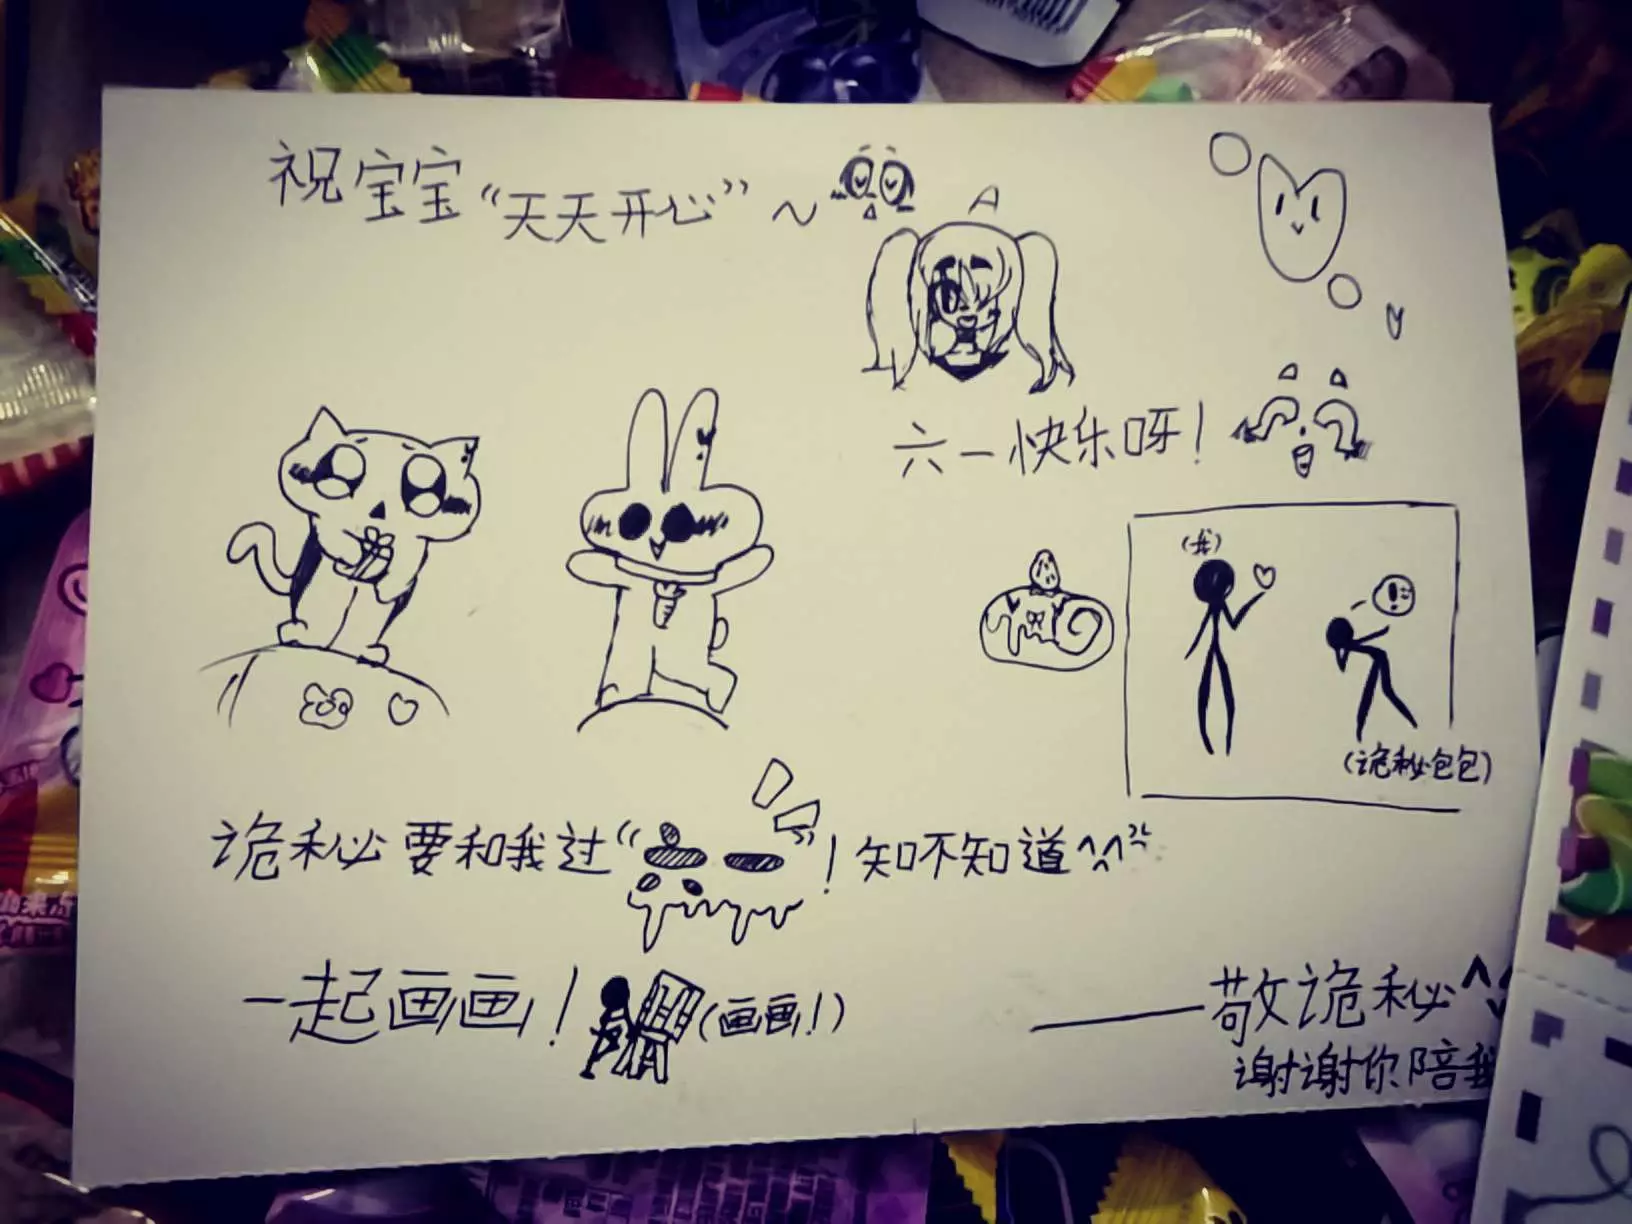 祝宝宝“天天开心”~
六一快乐呀!
(我)
(诡秘包包)
诡秘要和我过“ ”!知不知道^^
一起画画!(画画!)
——敬诡秘^
谢谢你陪我